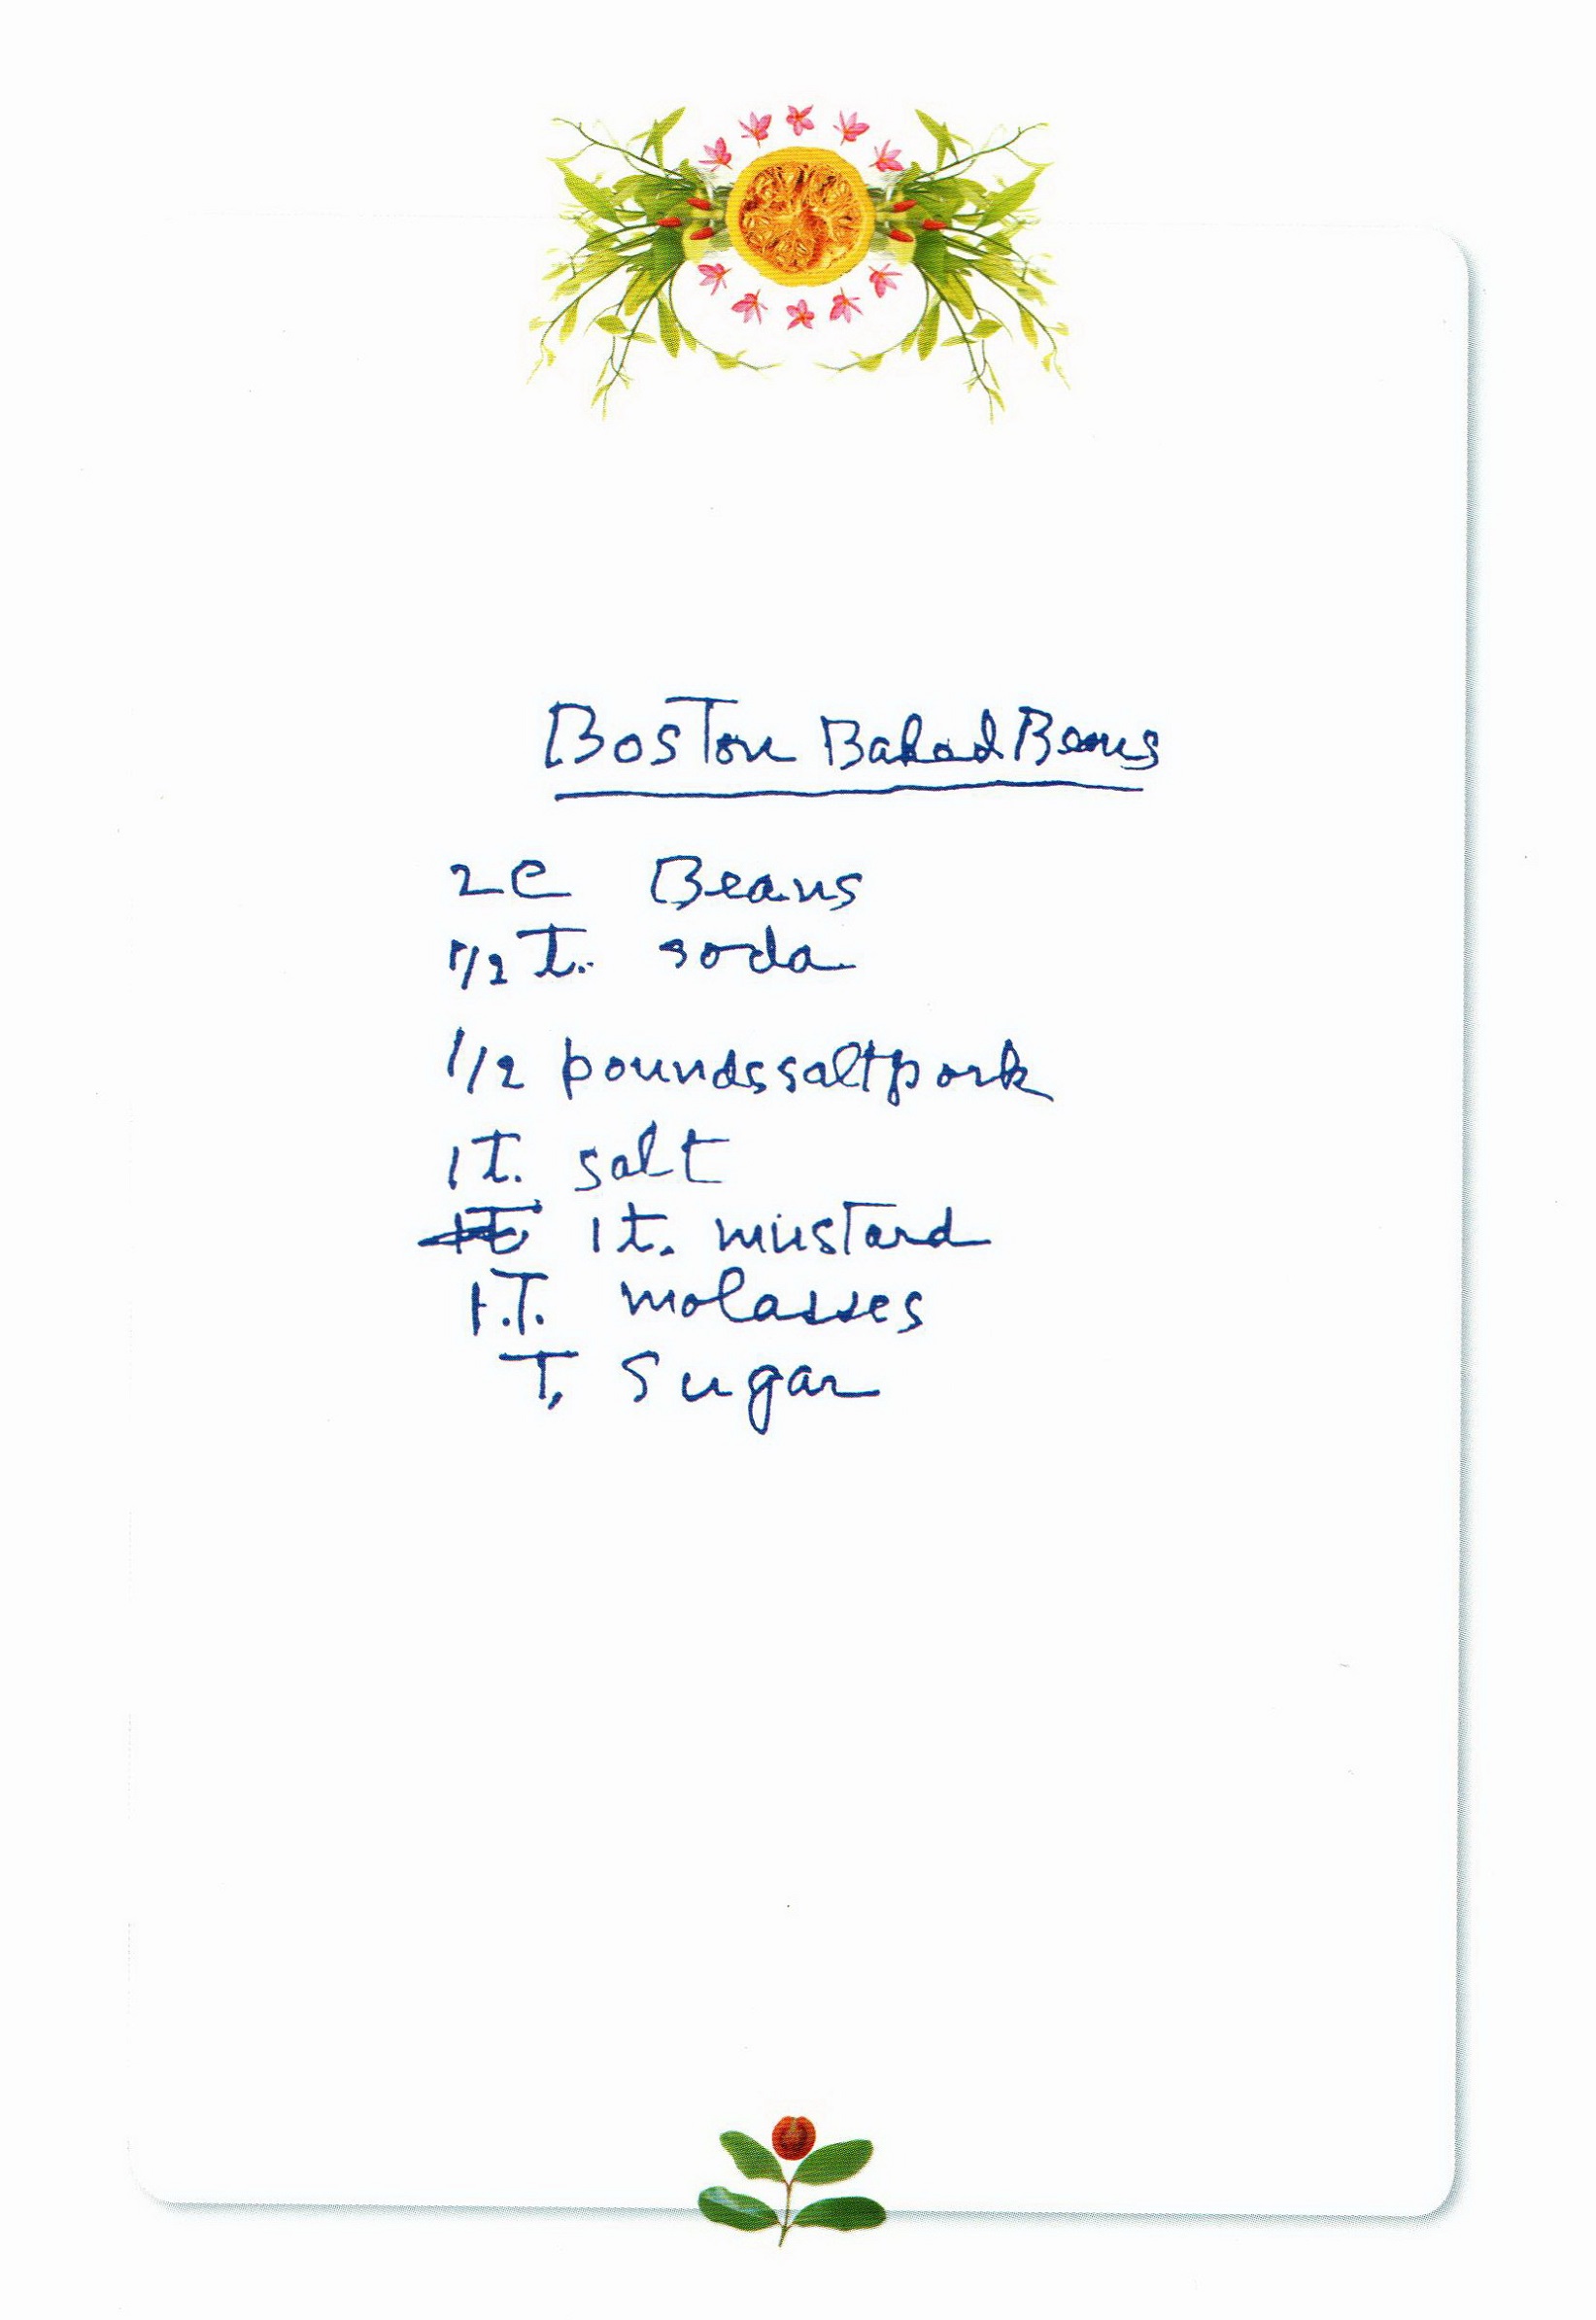 Boston Baked Beans
2C Beans
1/2 T. soda
1/2 pounds salt pork
1 T. salt
1 t. mustard
1.T. molasses
T. Sugar